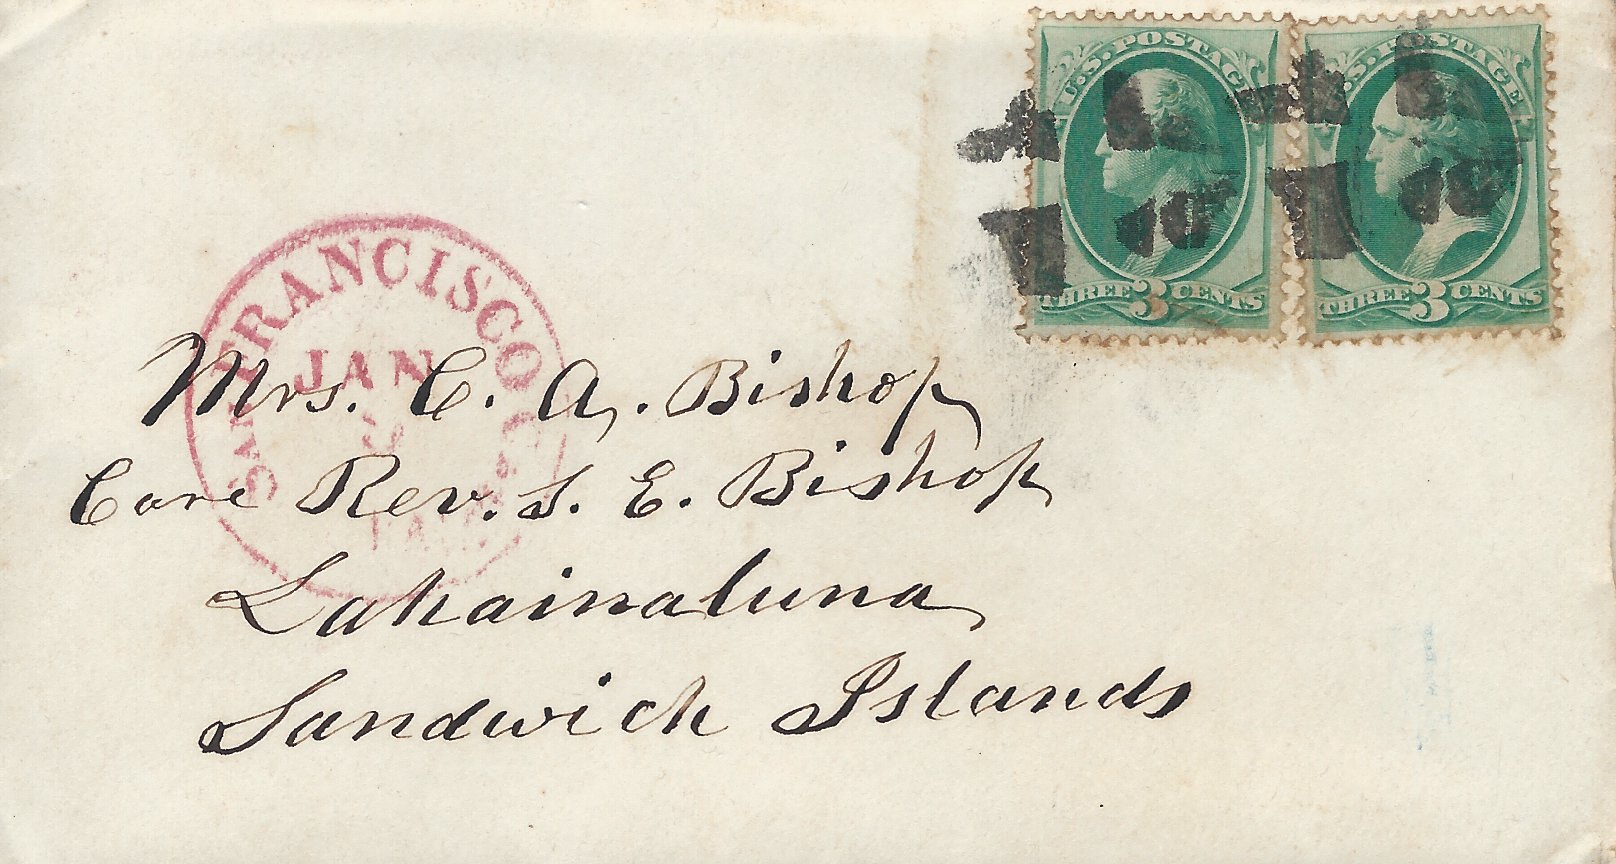 U.S. POSTAGE
THREE 3 CENTS
U.S. POSTAGE
THREE 3 CENTS
SAN FRANCISCO
JAN
Mrs. C. A. Bishop
Care Rev. S. E. Bishop
Lahainaluna
Sandwich Islands